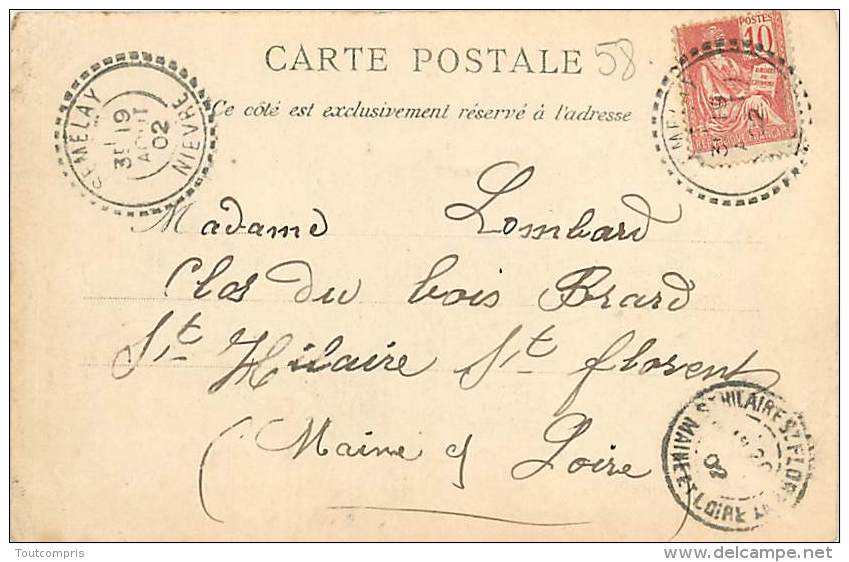 CARTE POSTALE
58
Ce côté est exclusivement réservé à l'adresse
POSTES
10
DROITS DE L'HOMME
SEMELAY
3E 19
AOUT
02
NIEVRE
19
02
Madame Lombard
Clos du bois Brard
St Hilaire St florent
(Maine & Loire)
ST HILAIRE ST FLORENT
02
MAINE ET LOIRE
Toutcompris
www.delcampe.net